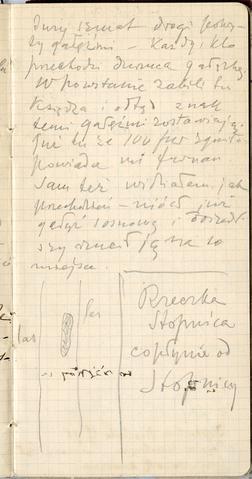 Duży szmat drogi pokry-
ty gałęźmi – Każdy, kto
przechodzi dorzuca gałązkę.
W powstanie zabili tu
księdza i odtąd znak
temi gałęźmi zostawiają.
Już tu ze 100 fur
powiada mi furman
Sam też widziałem, jak
przechodzień – niósł już
gałąź sosnową i
szy rzucił ją na to
miejsce.
las
las
Rzeczka
Stopnica
co płynie od
Stopnicy